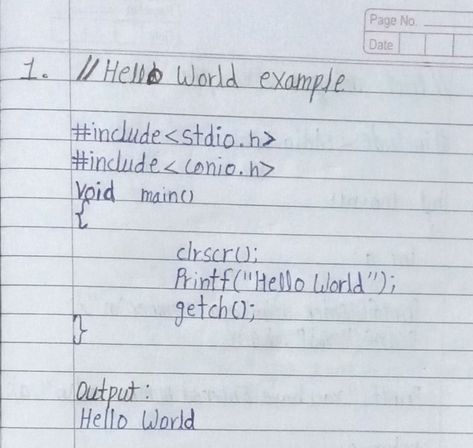 Page No.
Date
1. // Hello World example
#include<stdio.h>
#include<conio.h>
void main()
{
clrscr();
Printf("Hello World");
getch();
}
Output:
Hello World